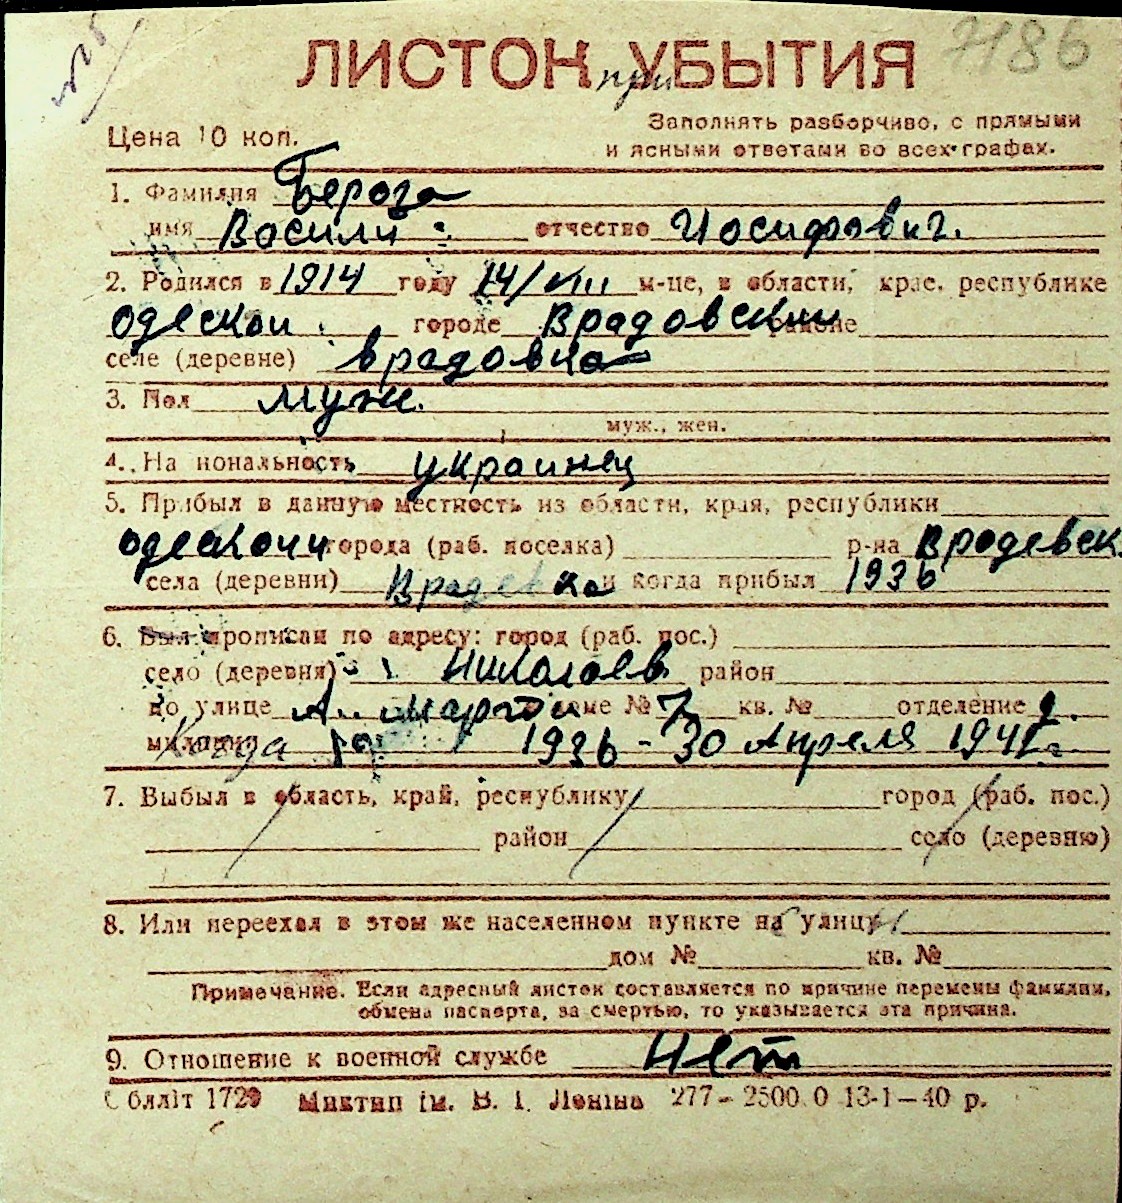 7186
ЛИСТОК УБЫТИЯ
при
Заполнять разборчиво, с прямыми
Цена 10 коп.
и ясными ответами во всех графах.
1. Фамилия Берога
имя Василий отчество Иосифович.
2. Родился в 1914 году 14/VIII м-це, в области, крае, республике
Одескои городе Врадовский районе
селе (деревне) Врадовка
3. Пол муж.
муж., жен.
4. На иональность украинец
5. Прибыл в данную местность из области, края, республики
Одеской города (раб. поселка) р-на Врадевск.
села (деревни) Врадевка и когда прибыл 1936
6. Был прописан по адресу: город (раб. пос.)
село (деревня) Николаев район
по улице доме № 7 кв. № отделение 2.
милиции Когда 1936 - 30 Апреля 1941г.
7. Выбыл в область, край, республику город (раб. пос.)
район село (деревню)
8. Или переехал в этом же населенном пункте на улицу
дом № кв. №
Примечание. Если адресный листок составляется по причине перемены фамилии,
обмена паспорта, за смертью, то указывается эта причина.
9. Отношение к военной службе Нет
бліт 1729 Миктип ім. В. І. Леніна 277-2500.0 13-1-40 р.